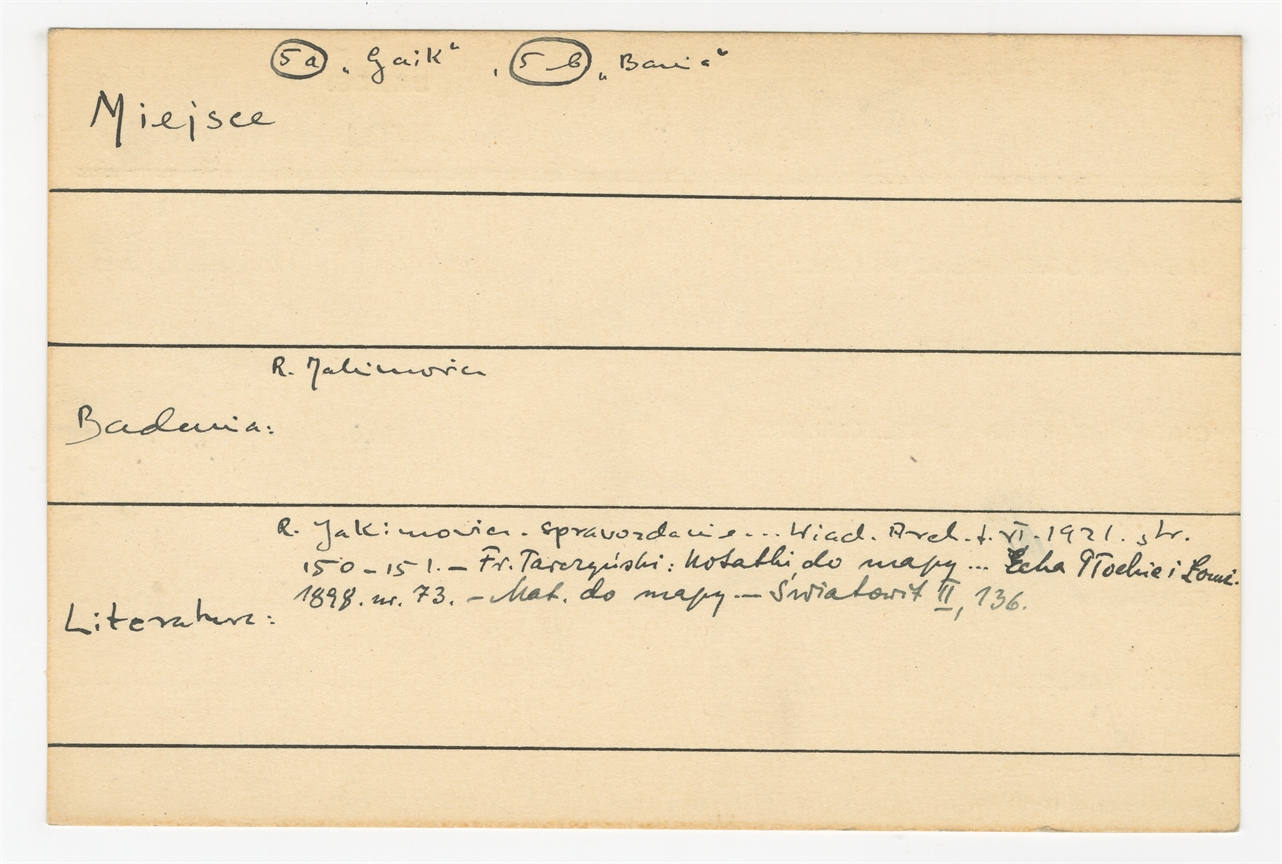 5a „Gaik“, 5b „Bania“
Miejsce
R. Jakimowicz
Badania:
R. Jakimowicz. Sprawozdanie... Wiad. Arch. t. VI. 1921. str.
150-151. - Fr. Tarczyński: Notatki do mapy... Echa Płockie i Łomż.
1898. nr. 73. - Mat. do mapy - Światowit II, 136.
Literatura: